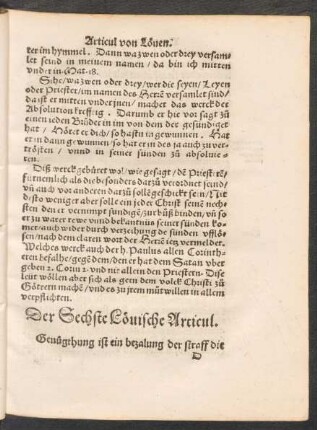 Articul von Löuen.
ter im hymmel. Dann wa zwen oder drey versam-
let seind in meinem namen / da bin ich mitten
vnder in Mat. 18.
Sihe / wa zwen oder drey / wer die seyen / Leyen
oder Priester / im namen des Herrē versamlet sind /
da ist er mitten vnder jnen / machet das werck der
Absolution krefftig. Darumb er hie vor sagt zů
einem ieden Brůder in im von dem der gesündiget
hat / Höret er dich / so hastu in gewunnen. Hat
er in dann gewunnen / so hat er in des ja auch zu ver-
trösten / vnnd in seiner sünden zů absoluie-
ren.
Diß werck gebüret wol / wie gesagt / dē Priestrē
fürnemlich als die besonders darzů verordnet seind /
vñ auch vor anderen darzů soll geschickt sein / Nit
disto weniger aber soll ein jeder Christ seinē nech-
sten den er vernimpt sündigē / zur bůß binden / vñ so
er zů warer rewe vnnd bekantnis seiner sünden kom-
met / auch wider durch verzeihung de sünden vfflö-
sen / nach dem claren wort der Herrē ietz vermeldet.
Welches werck auch der h. Paulus allen Corinth-
eren befalhe / gegē dem / den er hat dem Satan vber
geben 2. Corin 2. vnd nit allein den Priestern. Dise
leut wöllen aber sich als gern dem volck Christi zů
Göttern machē / vnd es zů jrem můtwillen in allem
verpflichten.
Der Sechste Löuische Articul.
Genůgthung ist ein bezalung der straff die
D